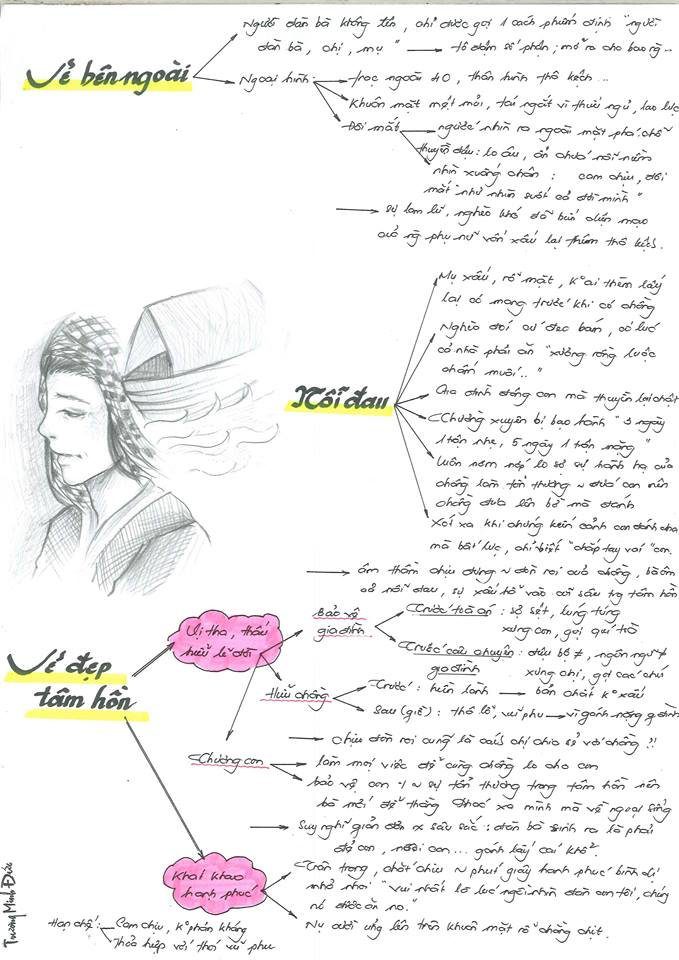 Vẻ bên ngoài
Người đàn bà không tên, chỉ được gọi 1 cách phiếm định "người
đàn bà, chị, mụ" → tô đậm số phận; mở ra cho bao ng~..
Ngoại hình: trạc ngoài 40, thân hình thô kệch...
Khuôn mặt mệt mỏi, tái ngắt vì thức ngủ, lao lực
Đôi mắt ngước nhìn ra ngoài mặt phá, chỗ
thuyền đậu: lo âu, ẩn chứa nỗi niềm
nhìn xuống chân: cam chịu, đôi
mắt "như nhìn suốt cả đời mình"
→ sự lam lũ, nghèo khó
ng phụ nữ vốn xấu lại thêm thô kệch.
Nỗi đau
Mụ xấu, rỗ mặt, k° ai thèm lấy
lại có mang trước khi có chồng
Nghèo đói cứ đeo bám, có lúc
cả nhà phải ăn "xương rồng luộc
chấm muối.."
Gia đình đông con mà thuyền lại chật
Thường xuyên bị bạo hành "3 ngày
1 trận nhẹ, 5 ngày 1 trận nặng"
Luôn nơm nớp lo sợ sự hành hạ của
chồng làm tổn thương ~ đứa con nên
chồng đưa lên bờ mà đánh
Xót xa khi chứng kiến cảnh con đánh cha
mà bất lực, chỉ biết "chắp tay vái" con.
→ âm thầm chịu đựng ~ đòn roi của chồng, bà ôm
cả nỗi đau, sự xấu hổ vào
Vẻ đẹp
tâm hồn
Vị tha, thấu
hiểu lẽ đời
Bảo vệ
gia đình
Trước toà án: sợ sệt, lúng túng
xưng con, gọi quí toà
Trước câu chuyện: điệu bộ ≠, ngôn ngữ ≠
gia đình xưng chị, gọi các chú
Hiểu chồng
Trước: hiền lành → bản chất k° xấu
Sau (giờ): thô lỗ, vũ phu → vì gánh nặng gia đình
→ chịu đòn roi cũng là cách chị chia sẻ với chồng !!
Thương con
làm mọi việc để cùng chồng lo cho con
bảo vệ con ~ sự tổn thương trong tâm hồn nên
bà mới để thằng Phác xa mình mà về ngoại sống
→ Suy nghĩ giản đơn x sâu sắc: đàn bà sinh ra là phải
đẻ con, nuôi con... gánh lấy cái khổ.
Khát khao
hạnh phúc
Trân trọng, chắt chiu ~ phút giây hạnh phúc bình dị
nhỏ nhoi "vui nhất là lúc ngồi nhìn đàn con tôi, chúng
nó được ăn no."
Nụ cười ửng lên trên khuôn mặt rỗ chằng chịt.
Hạn chế: Cam chịu, k° phản kháng
Thỏa hiệp với thói vũ phu
Trương Minh Đức